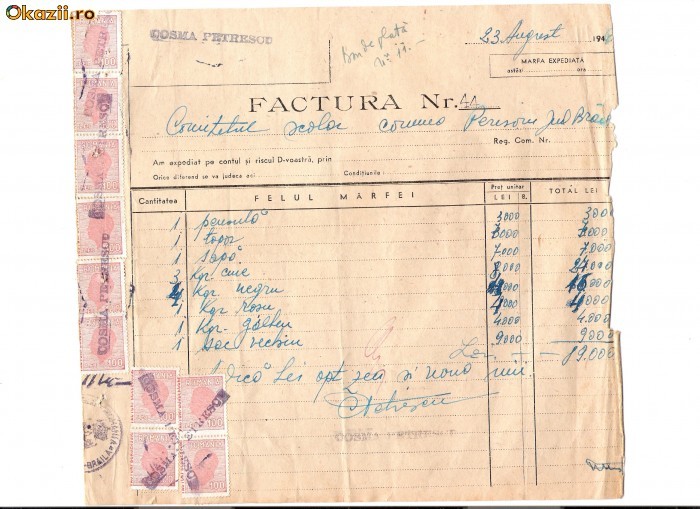 Okazii.ro
COSMA PETRESCU
Bon de plată
No 11.
23 August 194
MARFA EXPEDIATĂ
astăzi ora
FACTURA Nr. 44
Comitetul școlar comuna Perisoru Jud Brăila
Reg. Com. Nr.
Am expediat pe contul și riscul D-voastră, prin
Orice diferend se va judeca aci Condițiunile:
Cantitatea FELUL MĂRFEI Preț unitar LEI B. TOTAL LEI
1 pensulă 3000 3000
1 topor
1 sapă 7000 7.000
3 Kgr cuie
Kgr negru
1 Kgr rosu 4000 4000
1 Kgr galben 4.000 4.000
1 sac 9000 9000
Lei 89.000
Adică Lei opt zeci si nouă mii
CPetrescu
COSMA PETRESCU
COSMA PETRESCU
COSMA PETRESCU
COSMA PETRESCU
100
100
100
100
BRAILA